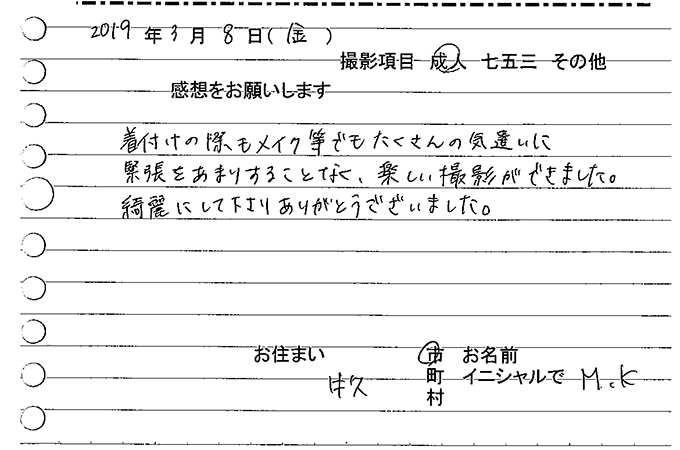 2019 年 3 月 8 日( 金 )
撮影項目 成人 七五三 その他
感想をお願いします
着付けの際もメイク等でもたくさんの気遣いに
緊張をあまりすることなく、楽しい撮影ができました。
綺麗にして下さりありがとうございました。
お住まい 市 お名前
町 イニシャルで M.K
村